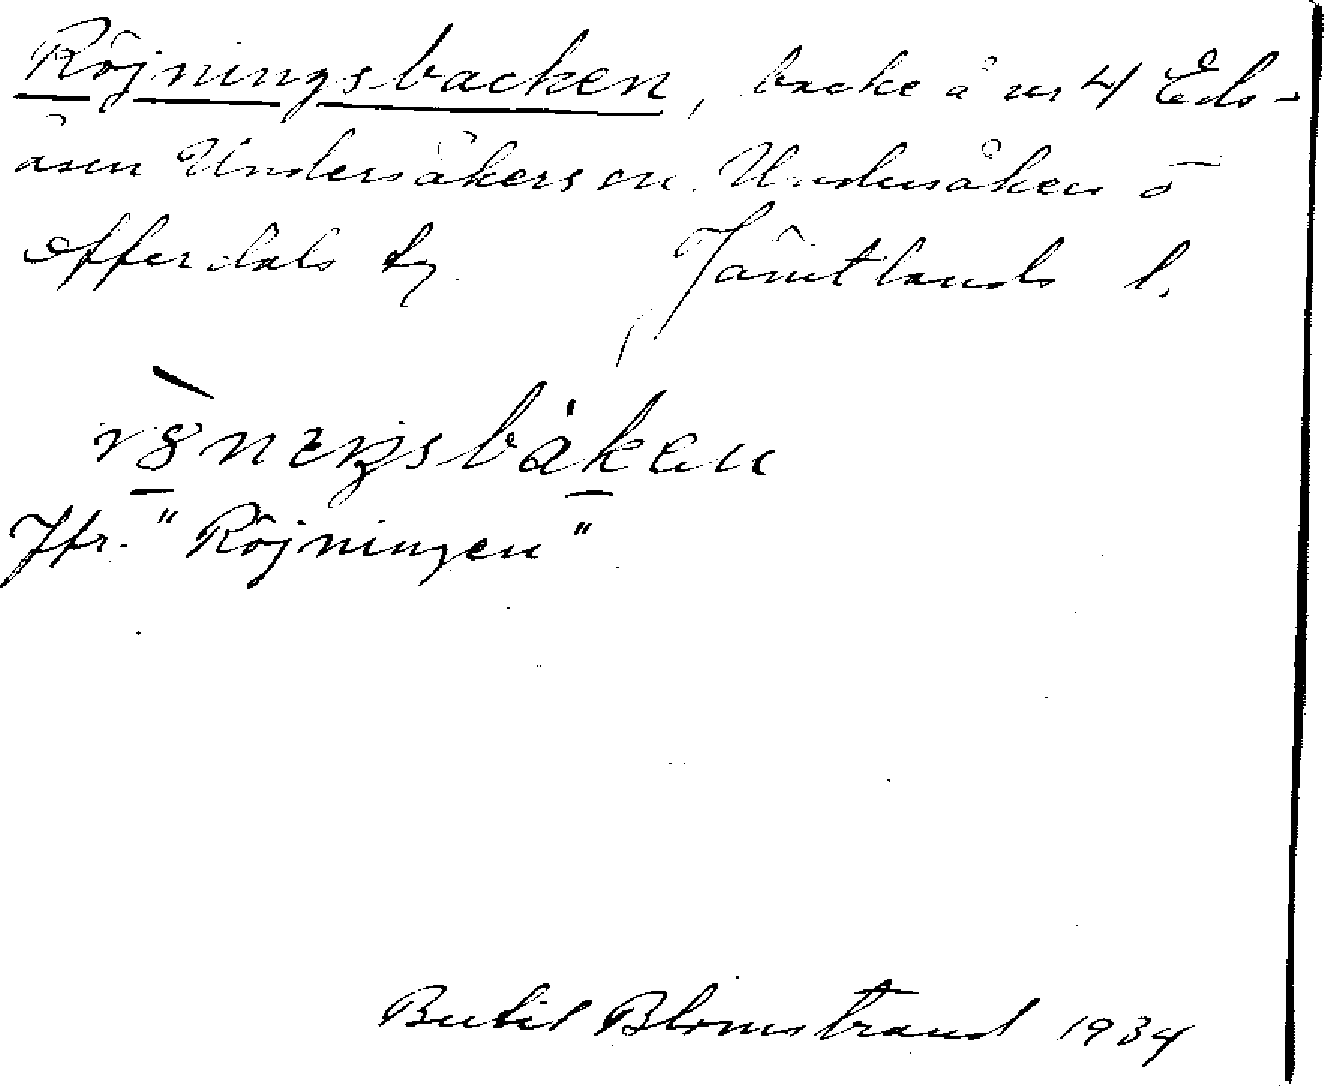 Röjningsbacken, backe å nr 4 Eds-
åsen Undersåkers sn. Undersåkers o
Offerdals tg Jämtlands l.
Jfr. "Röjningen"
Bertil Blomstrand 1934